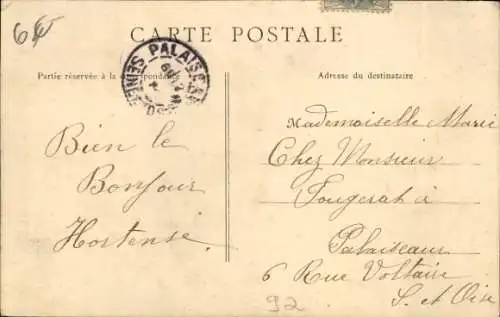 6
CARTE POSTALE
PALAISEAU
Partie réservée à la correspondance
Adresse du destinataire
Bien le
Bonjour
Hortense
Mademoiselle Marie
Chez Monsieur
Fougerah à
Palaiseau
6 Rue Voltaire
S. et Oise
92